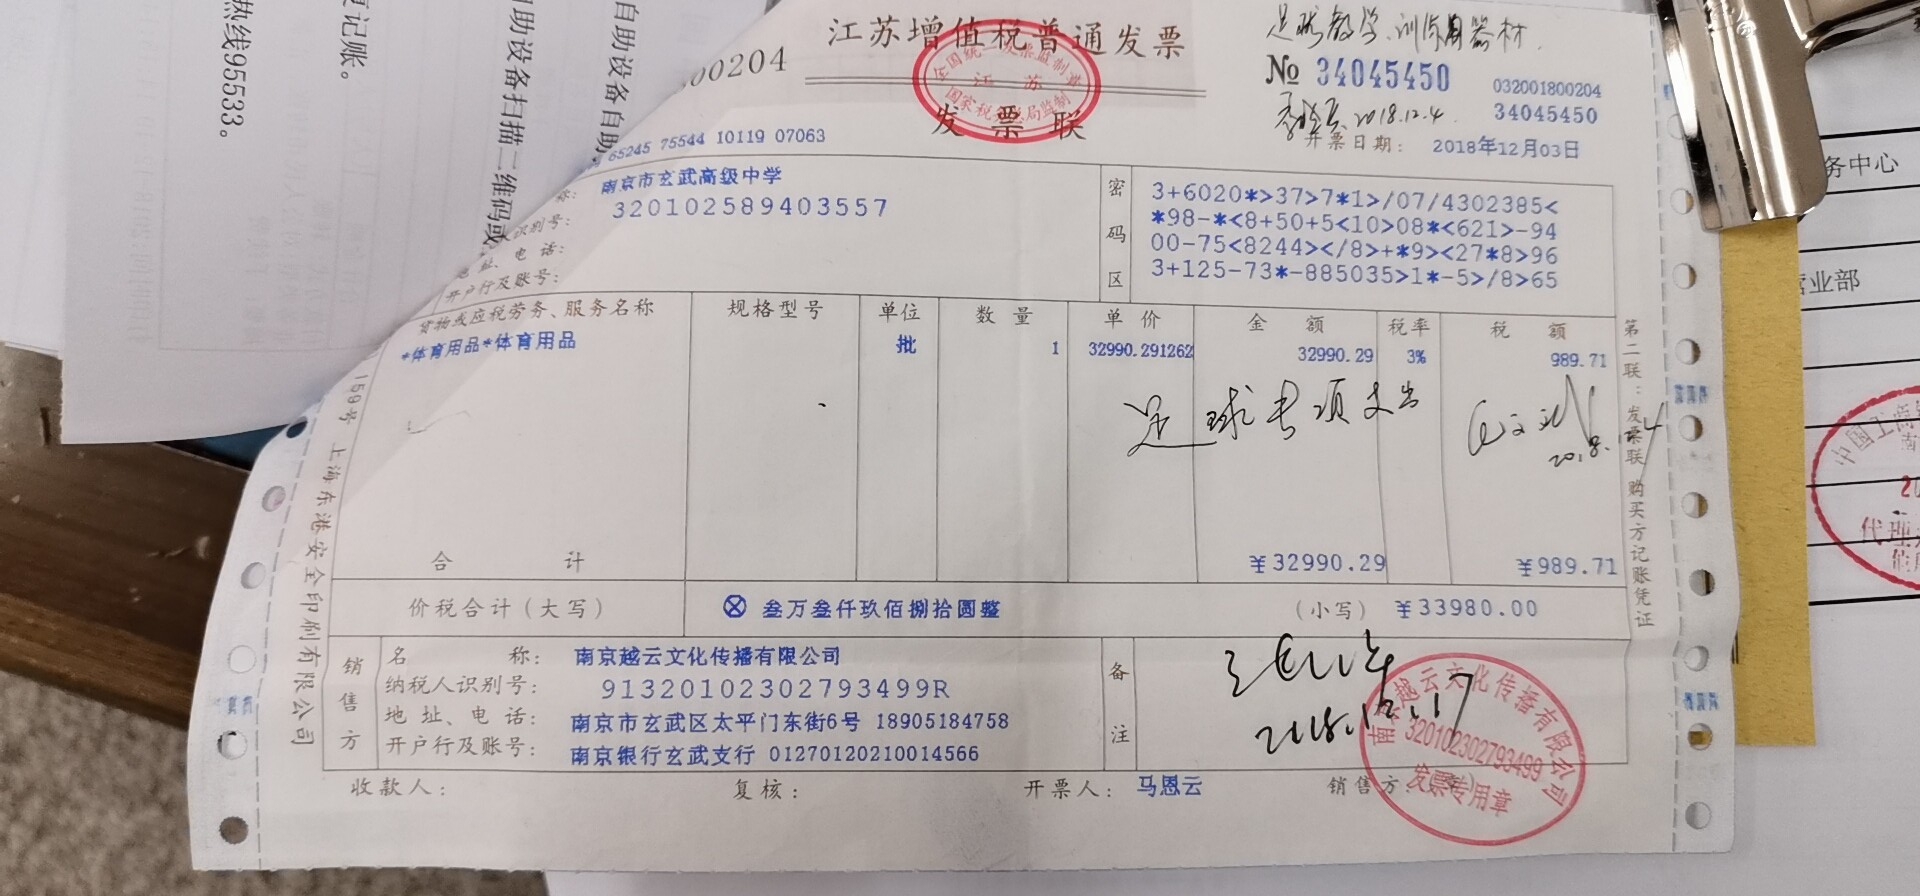 自助设备自助
自助设备扫描二维码或
记账。
热线95533。
江苏增值税普通发票
全国统一发票监制章
江 苏
国家税务总局监制
发票联
00204
足球教学、训练用器材.
№ 34045450
032001800204
34045450
2018.12.4
开票日期： 2018年12月03日
65245 75544 10119 07063
称： 南京市玄武高级中学
识别号： 320102589403557
地址、电话：
开户行及账号：
密码区
3+6020*>37>7*1>/07/4302385<
*98-*<8+50+5<10>08*<621>-94
00-75<8244></8>+*9><27*8>96
3+125-73*-885035>1*-5>/8>65
货物或应税劳务、服务名称 规格型号 单位 数量 单价 金额 税率 税额
*体育用品*体育用品 批 1 32990.291262 32990.29 3% 989.71
足球专项支出
合计 ¥32990.29 ¥989.71
价税合计（大写） ⊗ 叁万叁仟玖佰捌拾圆整 （小写） ¥33980.00
销售方
名称： 南京越云文化传播有限公司
纳税人识别号： 91320102302793499R
地址、电话： 南京市玄武区太平门东街6号 18905184758
开户行及账号： 南京银行玄武支行 01270120210014566
备注
2018.12.17
收款人： 复核： 开票人： 马恩云 销售方：
南京越云文化传播有限公司
320102302793499
发票专用章
第二联：发票联 购买方记账凭证
159号 上海东港安全印刷有限公司
务中心
营业部
中国工商